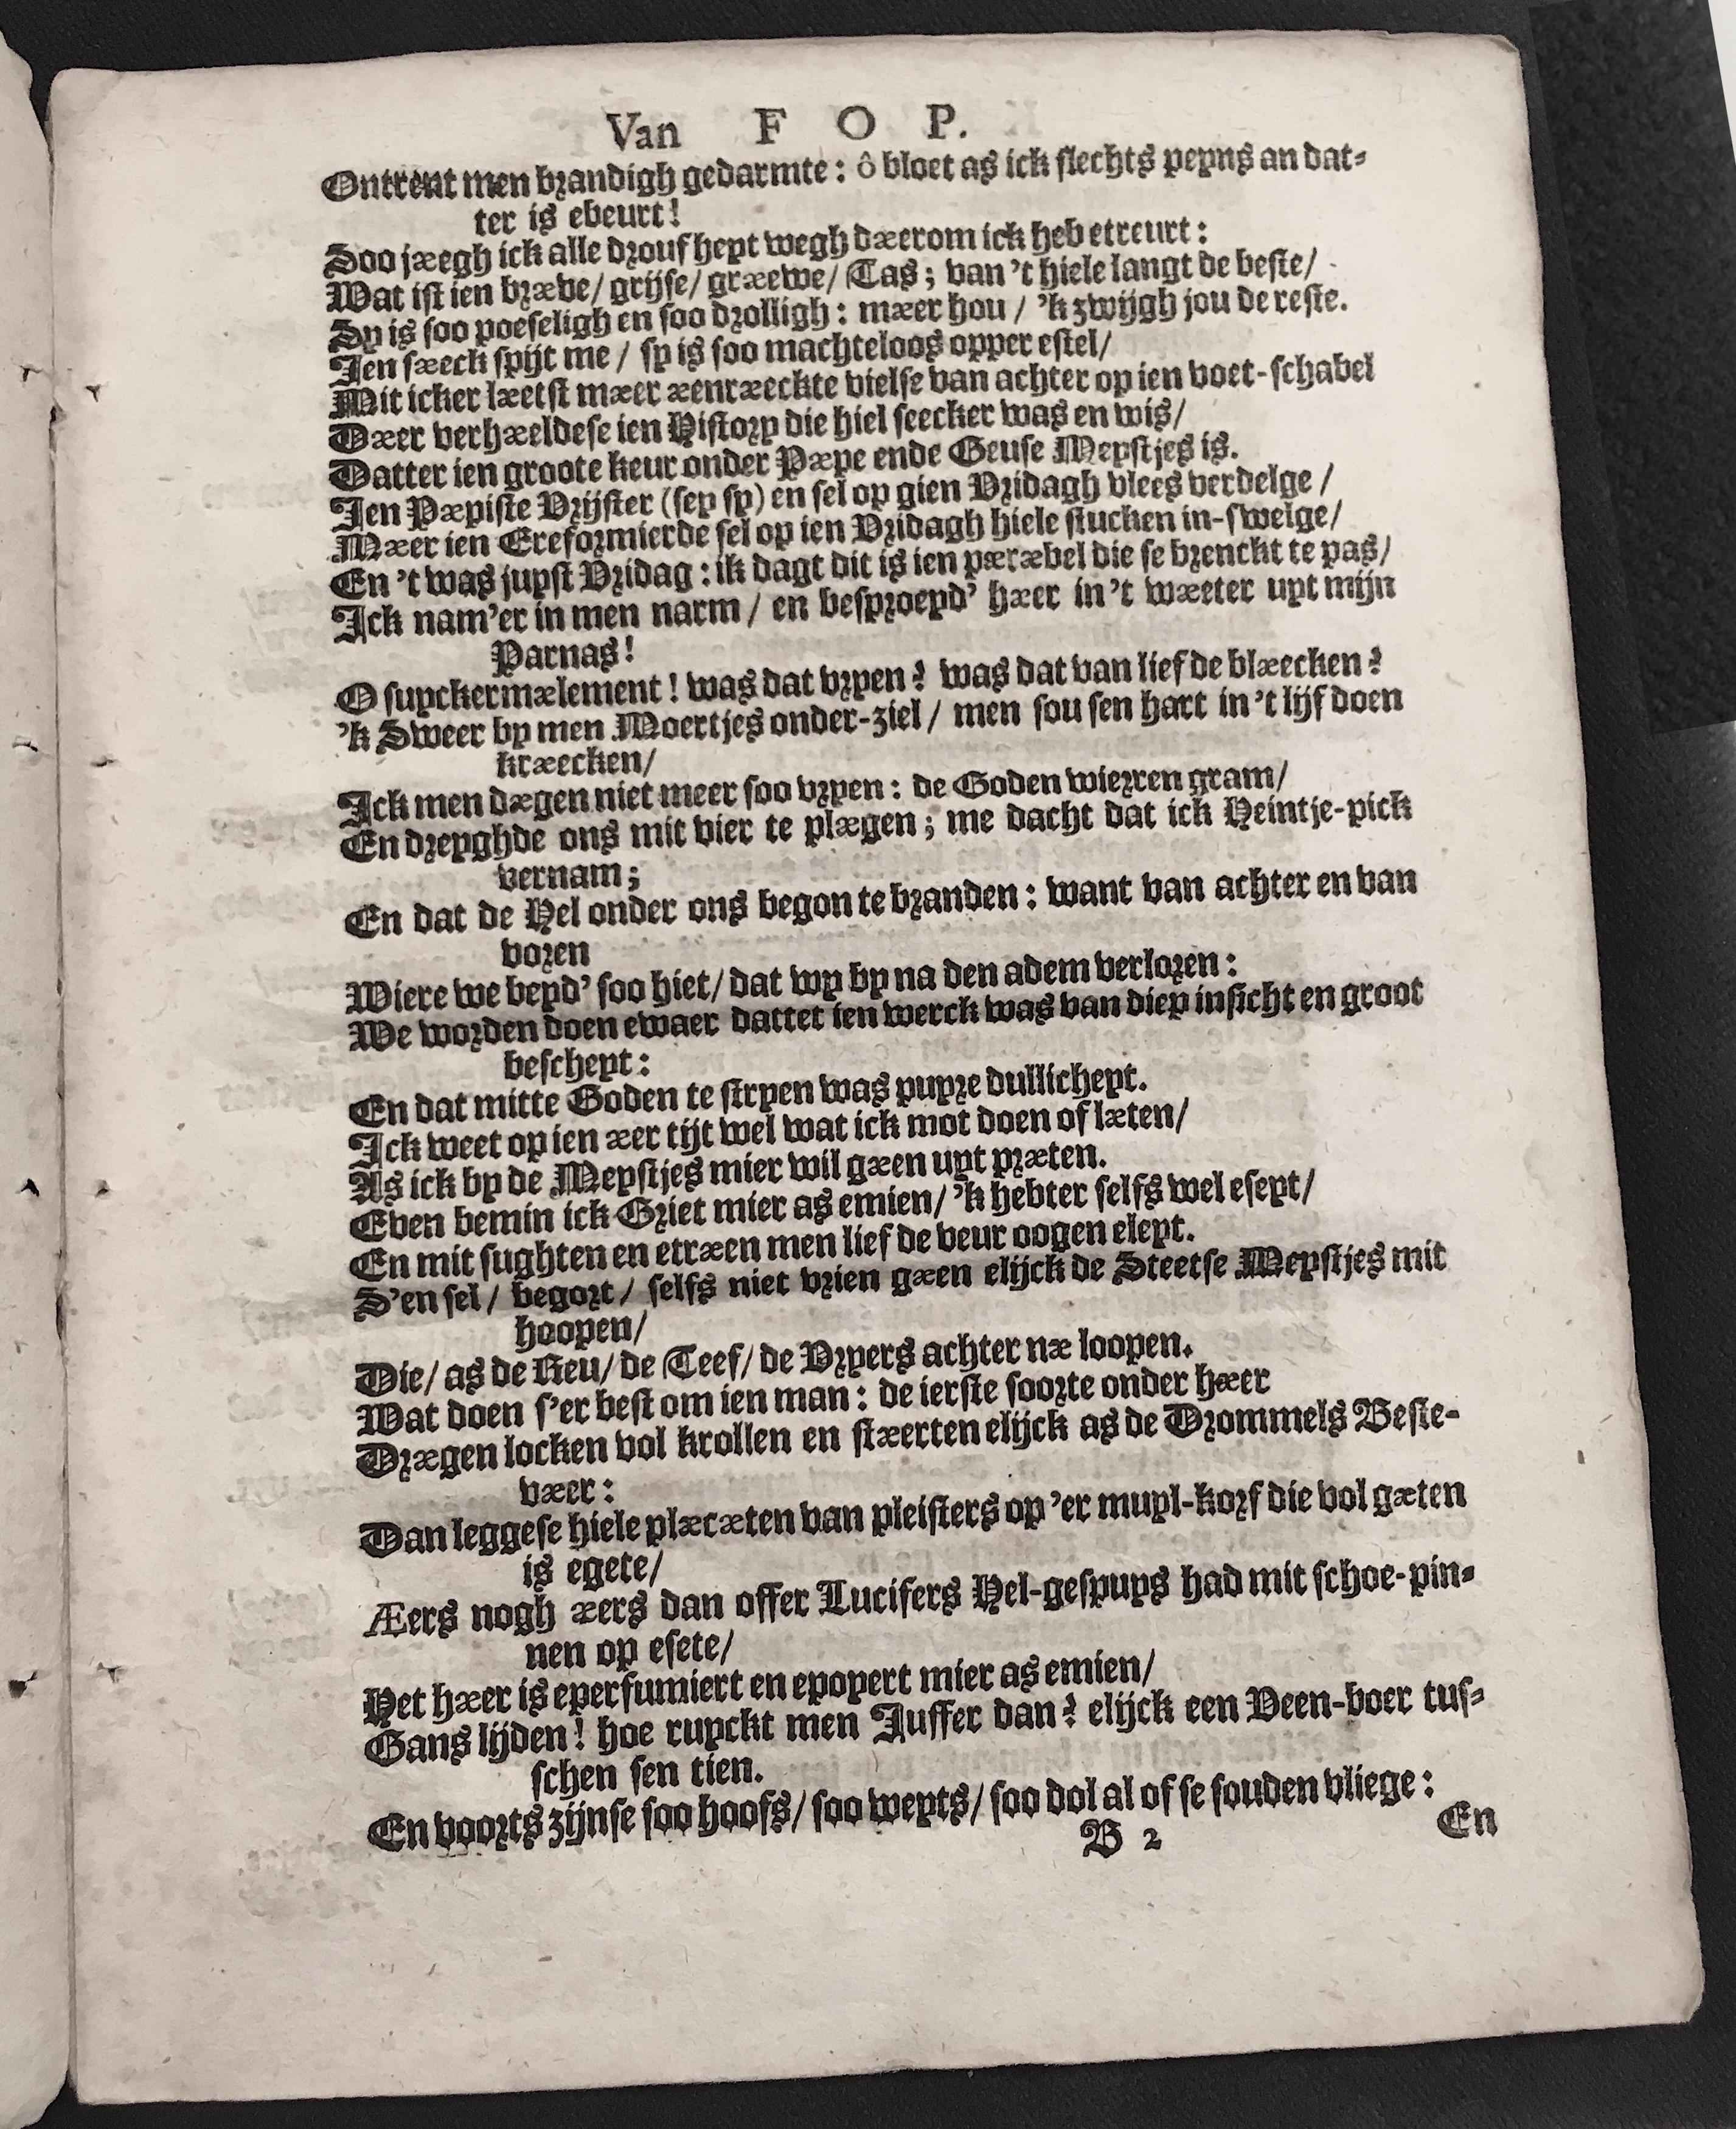 Van F O P.
Ontrent men brandigh gedarmte: ô bloet as ick slechts peyns an dat-
ter is ebeurt!
Soo jæegh ick alle droufheyt wegh dæerom ick heb etreurt:
Wat ist ien bræve/ grijse/ græewe/ Tas; van 't hiele langt de beste/
Sy is soo poeseligh en soo drolligh: mæer hou / 'k zwijgh jou de reste.
Ien sæeck spijt me / sy is soo machteloos opper estel/
Mit icker læetst mæer æenræeckte vielse van achter op ien voet-schabel
Dæer verhæeldese ien History die hiel seecker was en wis/
Datter ien groote keur onder Pæpe ende Geuse Meystjes is.
Ien Pæpiste Vrijster (sey sy) en sel op gien Vridagh vlees verdelge /
Mæer ien Ereformierde sel op ien Vridagh hiele stucken in-swelge/
En 't was juyst Vridag: ik dagt dit is ien pæræbel die se brenckt te pas/
Ick nam'er in men narm / en besproeyd' hæer in 't wæeter uyt mijn
Parnas!
O suyckermælement! was dat vryen? was dat van liefde blæecken?
'k Sweer by men Moertjes onder-ziel / men sou sen hart in 't lijf doen
kræecken/
Ick men dægen niet meer soo vryen: de Goden wierren gram/
En dreyghde ons mit vier te plægen; me dacht dat ick Heintje-pick
vernam;
En dat de Hel onder ons begon te branden: want van achter en van
voren
Wiere we beyd' soo hiet/ dat wy by na den adem verloren:
We worden doen ewaer dattet ien werck was van diep insicht en groot
bescheyt:
En dat mitte Goden te stryen was puyre dullicheyt.
Ick weet op ien æer tijt wel wat ick mot doen of læten/
As ick by de Meystjes mier wil gæen uyt præten.
Even bemin ick Griet mier as emien/ 'k hebter selfs wel eseyt/
En mit sughten en etræen men liefde veur oogen eleyt.
S'en sel/ begort/ selfs niet vrien gæen elijck de Steetse Meystjes mit
hoopen/
Die/ as de Reu/ de Teef/ de Vryers achter næ loopen.
Wat doen s'er best om ien man: de ierste soorte onder hæer
Drægen locken vol krollen en stæerten elijck as de Drommels Beste-
væer:
Dan leggese hiele plæcæten van pleisters op 'er muyl-korf die vol gæten
is egete/
Æers nogh æers dan offer Lucifers Hel-gespuys had mit schoe-pin-
nen op esete/
Het hæer is eperfumiert en epoyert mier as emien/
Gans lijden! hoe ruyckt men Juffer dan? elijck een Veen-boer tus-
schen sen tien.
En voorts zijnse soo hoofs/ soo weyts/ soo dol al of se souden vliege:
B 2 En